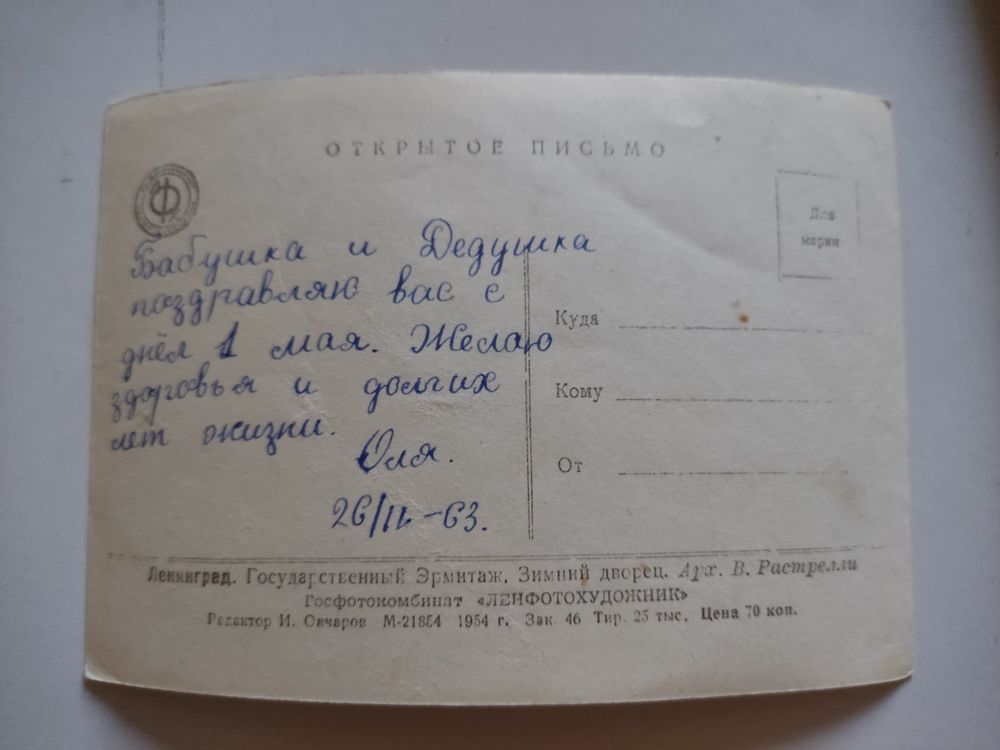 ОТКРЫТОЕ ПИСЬМО
Ф
Для
марки
Бабушка и Дедушка
поздравляю вас с
днём 1 мая. Желаю
здоровья и долгих
лет жизни.
Оля.
26/IV-63.
Куда
Кому
От
Ленинград. Государственный Эрмитаж. Зимний дворец. Арх. В. Растрелли
Госфотокомбинат «ЛЕНФОТОХУДОЖНИК»
Редактор И. Овчаров М-21854 1954 г. Зак. 46 Тир. 25 тыс. Цена 70 коп.